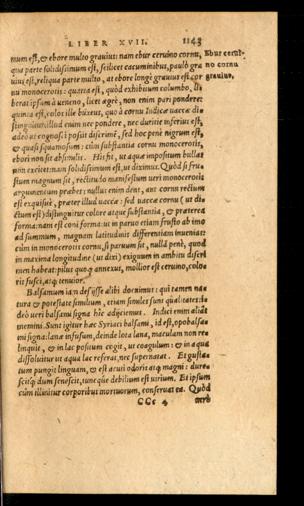 LIBER XVII. 1143
mum est, & ebore multo grauius: nam ebur ceruino cornu, Ebur cerui-
qua parte solidissimum est, scilicet cacuminibus, paulò gra no cornu
uius est, reliqua parte multo, at ebore longè grauius est cor grauius.
nu monocerotis: quarta est, quòd exhibitum columbo, li
berat ipsum à ueneno, licet agrè, non enim pari pondere:
quinta est, color ille buxeus, quo à cornu Indicae uaccae di
stinguitur, illud enim nec pondere, nec duritie inferius est,
adeò ut cognosci possit discrimē, sed hoc penè nigrum est,
& quasi squamosum: cùm substantia cornu monocerotis,
ebori non sit absimilis. His fit, ut aqua impositum bullas
non excitet: nam solidissimum est, ut diximus. Quòd si fru
stum magnum sit, rectitudo manifestum ueri monocerotis
argumentum praebet: nullus enim dent, aut cornu rectum
est exquisitè, praeter illud uaccae: sed uaccae cornu (ut di
ctum est) distinguitur colore atque substantia, & praeterea
forma: nam est coni forma: ut in paruo etiam frusto ab imo
ad summum, magnam latitudinis differentiam inuenias:
cùm in monocerotis cornu, si paruum sit, nulla penè, quod
in maxima longitudine (ut dixi) exiguum in ambitu discri
men habeat: pilus quoq annexus, mollior est ceruino, colo
ris fusci, atq tenuior.
Balsamum iam desijsse alibi docuimus: qui tamen na
tura & potestate similium, etiam similes sunt qualitates: i
deò ueri balsami signa hîc adijciemus. Indici enim aliàs
memini. Sunt igitur haec Syriaci balsami, id est, opobalsa
mi signa: lana infusum, deinde lota lana, maculam non re
linquit, & in lac positum cogit, ut coagulum: & in aqua
dissoluitur ut aqua lac referat, nec supernatat. Et gusta
tum pungit linguam, & est acuti odoris atq magni: dure
scitq dum senescit, tuncque debilium est uirium. Et ipsum
cùm illinitur corporibus mortuorum, conseruat ea. Quòd
CCc 4 uerò